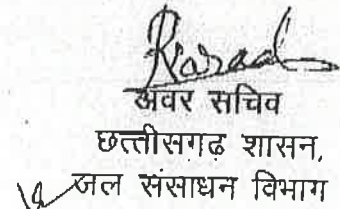 अवर सचिव
छत्तीसगढ़ शासन,
जल संसाधन विभाग